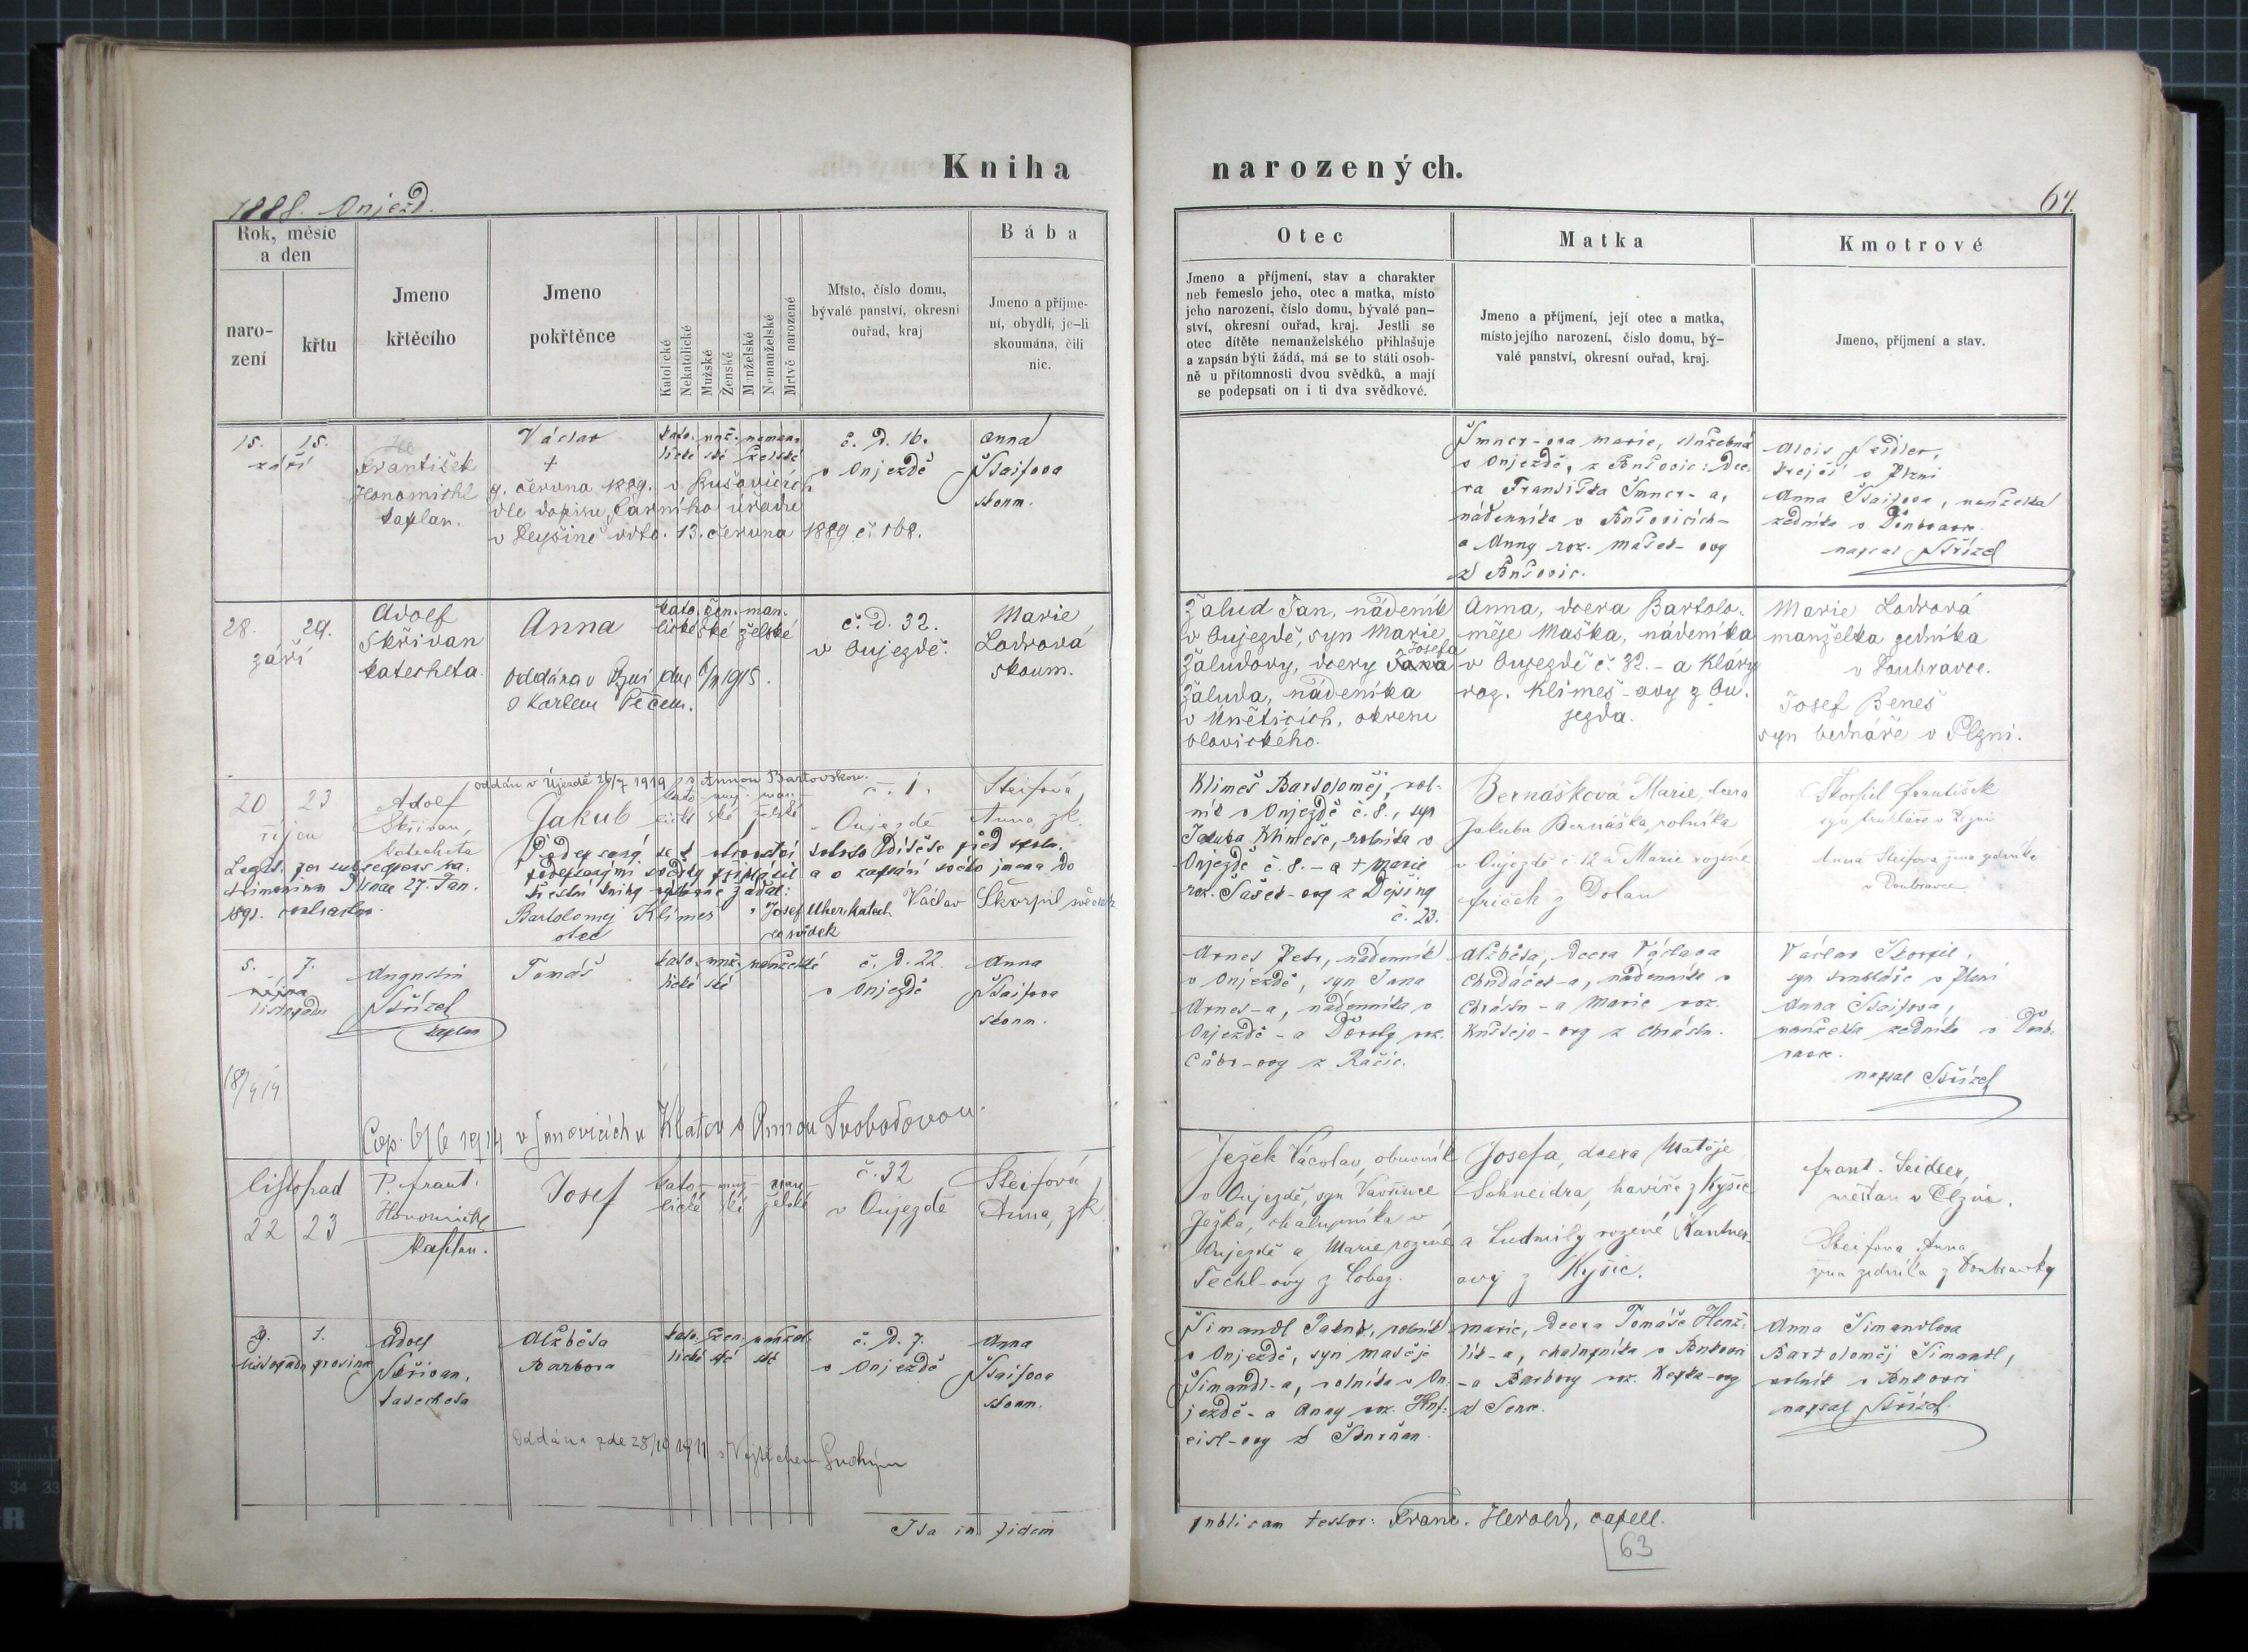 Kniha
narozených.
1888. Oujezd.
64.
Rok, měsíc
a den
naro-
zení
křtu
Jmeno
křtěcího
Jmeno
pokřtěnce
Katolické
Nekatolické
Mužské
Ženské
Manželské
Nemanželské
Mrtvě narozené
Místo, číslo domu,
bývalé panství, okresní
ouřad, kraj
Bába
Jmeno a příjme-
ní, obydlí, je-li
skoumána, čili
nic.
Otec
Jmeno a příjmení, stav a charakter
neb řemeslo jeho, otec a matka, místo
jeho narození, číslo domu, bývalé pan-
ství, okresní ouřad, kraj. Jestli se
otec dítěte nemanželského přihlašuje
a zapsán býti žádá, má se to státi osob-
ně u přítomnosti dvou svědků, a mají
se podepsati on i ti dva svědkové.
Matka
Jmeno a příjmení, její otec a matka,
místo jejího narození, číslo domu, bý-
valé panství, okresní ouřad, kraj.
Kmotrové
Jmeno, příjmení a stav.
15. 15.
září
František
Honomichl
kaplan.
Václav
+
9. června 1889. v Bušovicích
dle dopisu farního úřadu
v Dýšině odto. 13. června 1889 č. 168.
č. d. 16.
v Oujezdě
Anna
Štaifova
skoum.
marie, služebná
v Oujezdě, z Bušovic: dce-
ra Františka
nádenníka v Bušovicích-
a Anny roz. Mašek-ovy
z Bušovic.
Alois Seidler,
krejčí v Plzni
Anna Štaifova, manželka
zedníka v Doubravce
napsal Střízel
28. 29.
září
Adolf
Skřivan
katecheta.
Anna
Oddána v Plzni dne 6/II 1915.
s Karlem Pěčem.
kato- žen- man-
lické ské želské
č. d. 32.
v Oujezdě.
Marie
Lodrová
skoum.
Žalud Jan, nádeník
v Oujezdě, syn Marie
Žaludovy, dcery Jana Josefa
Žaluda, nádeníka
v Úněticích, okresu
blovického.
Anna, dcera Bartolo-
měje Maška, nádeníka
v Oujezdě č. 32.- a Kláry
roz. Klimeš-ovy z Ou-
jezda.
Marie Lodrová
manželka zedníka
v Doubravce.
Josef Beneš
syn bednáře v Plzni.
oddán v Újezdě 26/7 1919 s Annou Bartovskou.
20 23
říjen
Adolf
Skřivan,
katecheta
Jakub
kato- muž- man-
lické ské želské
č. 1.
v Oujezdě
Steifová,
Anna, zk.
Legit. per subsequens ma-
trimonium Plnae 27. Jan.
1891. contractum.
Podepsaný se k otcovství tohoto dítěte před spolu-
podepsanými svědky přiznal a o zapsání svého jmena do
křestní knihy výslovně žádal:
Bartolomej Klimeš
otec
Josef Uher, katech.
co svědek
Václav Škorpil svědek
Klimeš Bartoloměj, rol-
ník v Oujezdě č. 8., syn
Jakuba Klimeše, rolníka v
Oujezdě č. 8. - a + Marie
roz. Sašek-ovy z Dejšiny
č. 23.
Bernášková Marie, dcera
Jakuba Bernáška, rolníka
v Oujezdě č. 12 a Marie rozené
friček z Dolan
Škorpil František
syn truhláře v Plzni
Anna Steifova žena zedníka
v Doubravce
5. 7.
října
listopadu
Augustin
Střízel
kaplan
Tomáš
kato- muž- manželské
lické ské
č. d. 22.
v Oujezdě
Anna
Štaifova
skoum.
18/4 14
Cop. 6/6 1914 v Janovicích u Klatov s Annou Svobodovou.
Arnes Petr, nádenník
v Oujezdě, syn Jana
Arnes-a, nádenníka v
Oujezdě - a Doroty roz.
z Račic.
Alžběta, dcera Václava
Chudáček-a, nádenníka v
Chrástu - a Marie roz.
z Chrástu.
Václav Škorpil,
syn truhláře v Plzni
Anna Štaifova,
manželka zedníka v Doub-
ravce.
napsal Střízel
listopad
22 23
P. Frant.
Honomichl
kaplan.
Josef
kato- muž- man-
lické ské želské
č. 32
v Oujezdě
Steifová,
Anna, zk.
Ježek Václav, obuvník
v Oujezdě, syn Vavřince
Ježka, chalupníka v
Oujezdě a Marie rozené
Techl-ovy z Lobez.
Josefa, dcera Matěje
Schneidra, havíře z Kyšic
a Ludmily rozené Kantner-
ovy z Kyšic.
Frant. Seidler,
měšťan v Plzni.
Steifova Anna
žena zedníka z Doubravky
9. 1.
listopadu prosince
Adolf
Skřivan,
katecheta
Alžběta
Barbora
kato- žen- manžel-
lické ské ské
č. d. 7.
v Oujezdě
Anna
Štaifova
skoum.
Oddána zde 28/10 1911 s Vojtěchem Suchým
Šimandl Jakub, rolník
v Oujezdě, syn Matěje
Šimandl-a, rolníka v Ou-
jezdě - a Anny roz.
Marie, dcera Tomáše
chalupníka v Bukovci
- a Barbory roz.
z Senc.
Anna Šimandlova
Bartoloměj Šimandl,
rolník v Bukovci
napsal Střízel.
Ita in fidem
publicam testor: Franc. Herolch, capell.
63